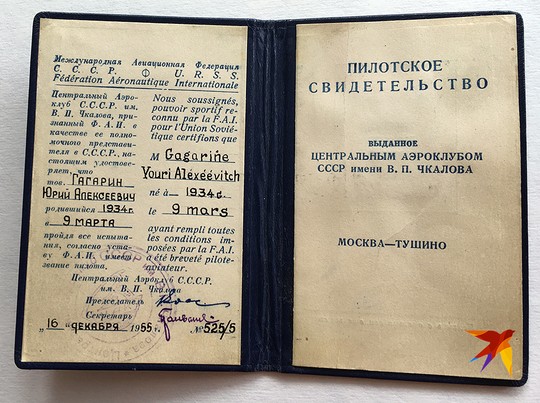 Международная Авиационная Федерация
С. С. С. Р. Ф U. R. S. S.
Fédération Aéronautique Internationale
Центральный Аэро-
клуб С.С.С.Р. им.
В. П. Чкалова, при-
знанный Ф. А. И. в
качестве ее полно-
мочного представи-
теля в С.С.С.Р., на-
стоящим удостове-
ряет, что
тов. ГАГАРИН
ЮРИЙ АЛЕКСЕЕВИЧ
родившийся 1934г.
в 9 МАРТА
пройдя все испыта-
ния, согласно уста-
ву Ф. А. И. имеет
звание пилота.
Nous soussignés,
pouvoir sportif re-
connu par la F.A.I.
pour l'Union Sovié-
tique certifions que
M Gagarine
Youri Aléxéévitch
né à 1934г.
le 9 mars
ayant rempli toutes
les conditions im-
posées par la F.A.I.
a été breveté pilote-
aviateur.
Центральный Аэроклуб С.С.С.Р.
им. В. П. Чкалова
Председатель
Секретарь
„16 " ДЕКАБРЯ 1955 г. № 525/5
ПИЛОТСКОЕ
СВИДЕТЕЛЬСТВО
ВЫДАННОЕ
ЦЕНТРАЛЬНЫМ АЭРОКЛУБОМ
СССР имени В. П. ЧКАЛОВА
МОСКВА—ТУШИНО